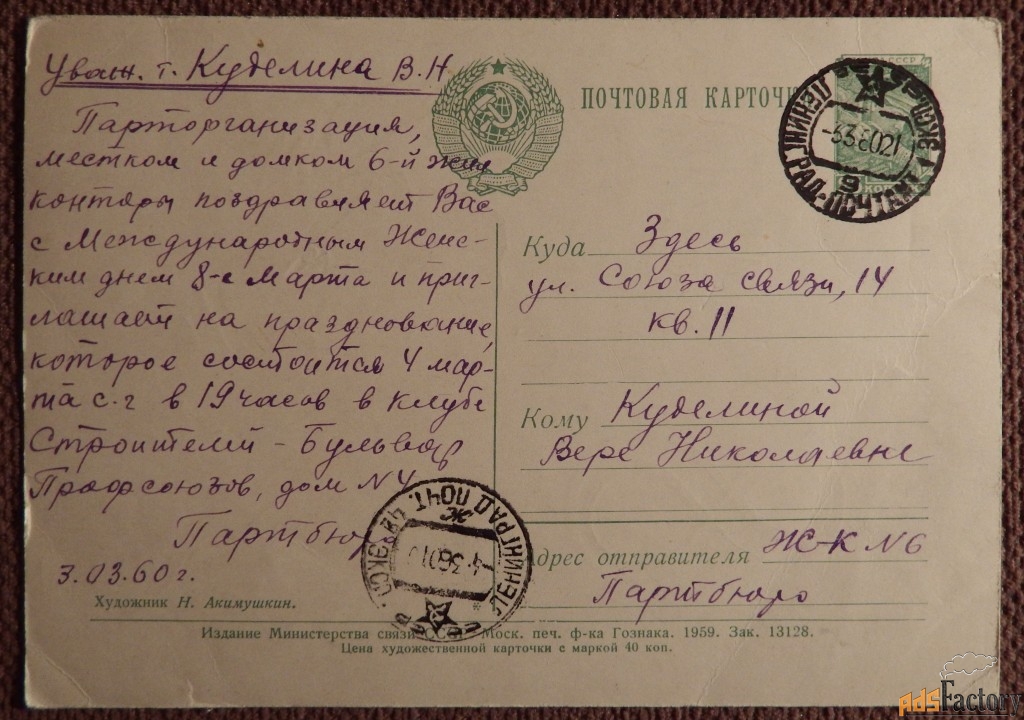 Уваж. т. Куделина В.Н.
Парторганизация,
местком и домком 6-й жил
конторы поздравляет Вас
с Международным Женс-
ким днем 8-е Марта и приг-
лашает на празднование,
которое состоится 4 мар-
та с.г в 19 часов в клубе
Строителей - Бульвар
Профсоюзов, дом N 4
Партбюро
3.03.60 г.
Художник Н. Акимушкин.
ПОЧТОВАЯ КАРТОЧКА
ЛЕНИНГРАД-ПОЧТАМТ
-336021
9
Куда Здесь
ул. Союза связи, 14
кв. 11
Кому Куделиной
Вере Николаевне
Адрес отправителя Ж-К N 6
Партбюро
ЛЕНИНГРАД ПОЧТ.
Издание Министерства связи СССР. Моск. печ. ф-ка Гознака. 1959. Зак. 13128.
Цена художественной карточки с маркой 40 коп.
AdsFactory